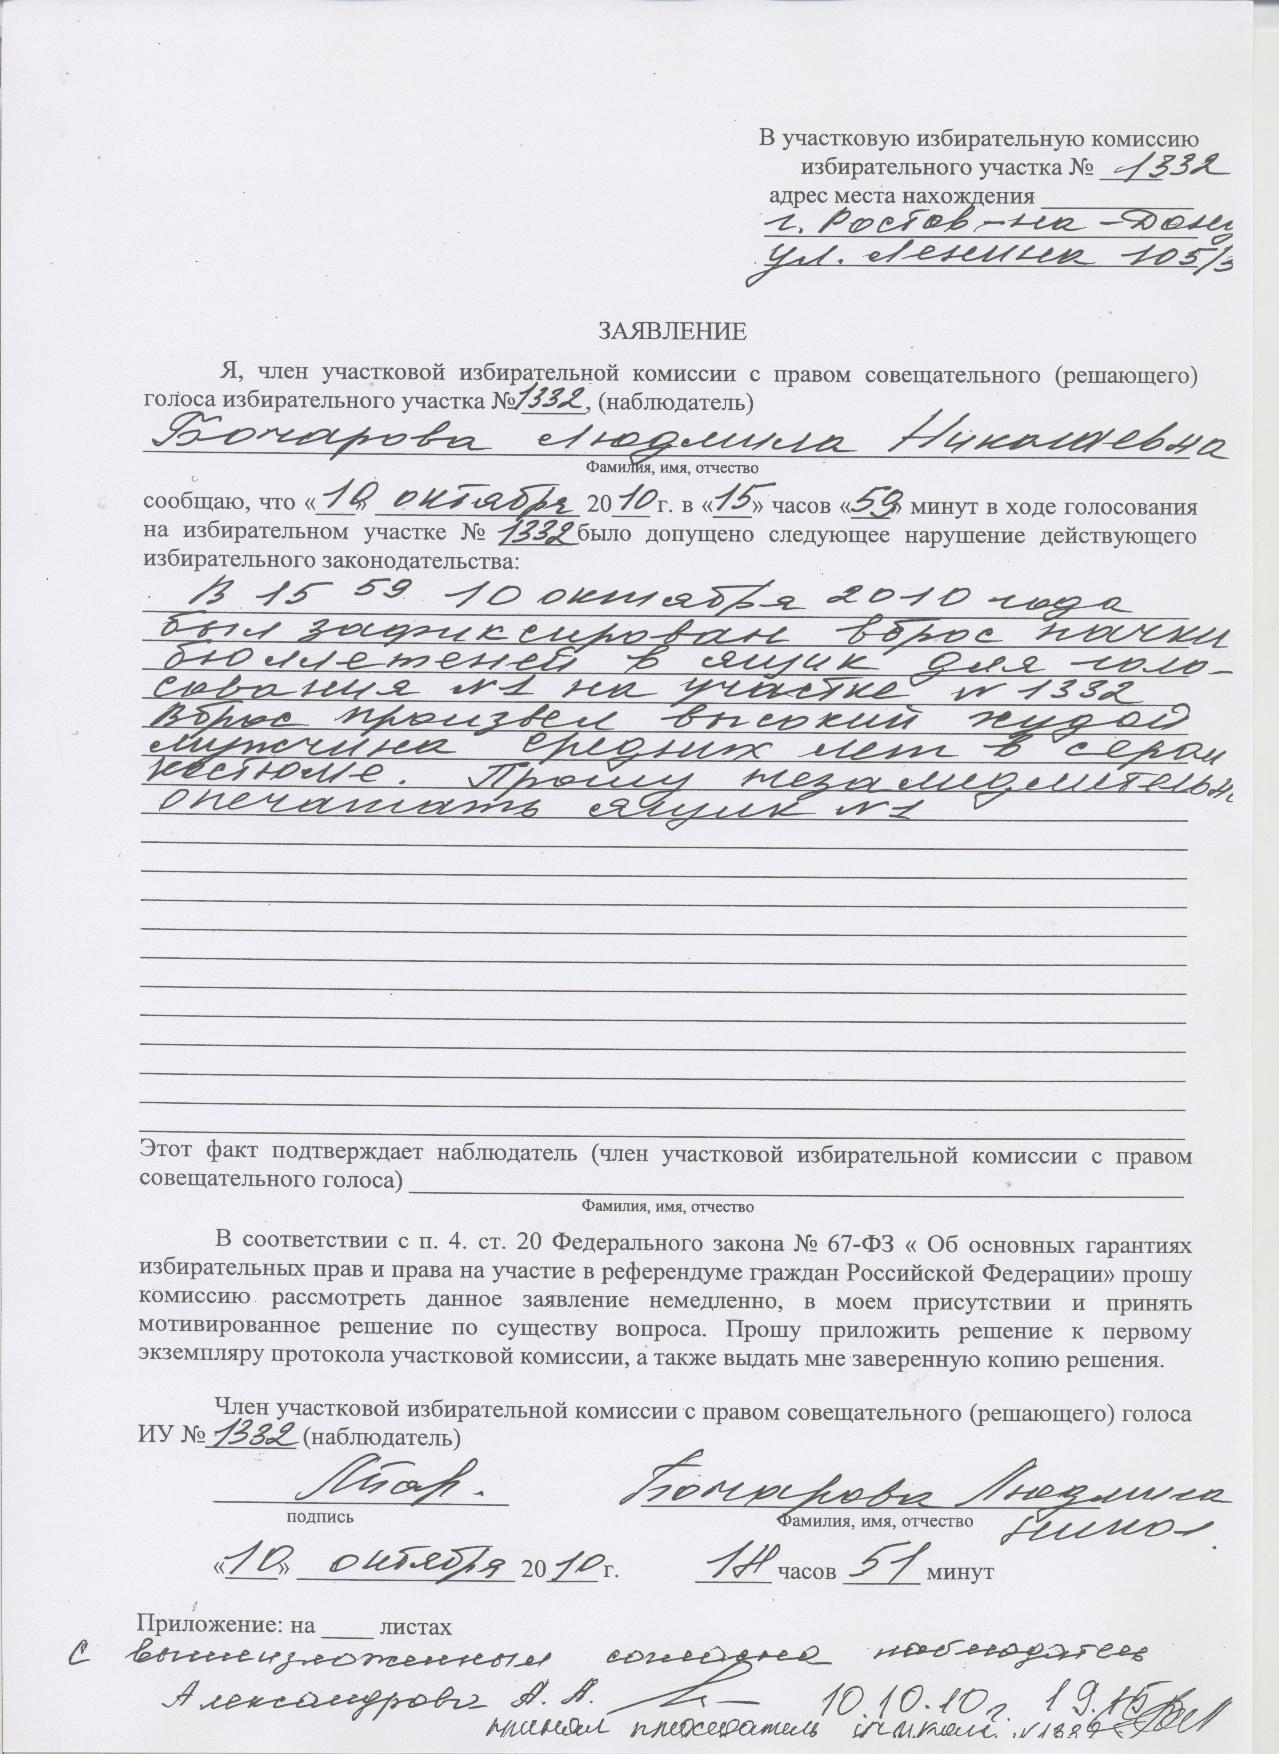 В участковую избирательную комиссию
избирательного участка № 1332
адрес места нахождения
г. Ростов-на-Дону
ул. Ленина 105/3
ЗАЯВЛЕНИЕ
Я, член участковой избирательной комиссии с правом совещательного (решающего)
голоса избирательного участка № 1332, (наблюдатель)
Бочарова Людмила Николаевна
Фамилия, имя, отчество
сообщаю, что «10» октября 2010 г. в «15» часов «59» минут в ходе голосования
на избирательном участке № 1332 было допущено следующее нарушение действующего
избирательного законодательства:
В 15 59 10 октября 2010 года
был зафиксирован вброс пачки
бюллетеней в ящик для голо-
сования №1 на участке № 1332
Вброс произвел высокий худой
мужчина средних лет в сером
костюме. Прошу незамидлительно
опечатать ящик №1
Этот факт подтверждает наблюдатель (член участковой избирательной комиссии с правом
совещательного голоса)
Фамилия, имя, отчество
В соответствии с п. 4. ст. 20 Федерального закона № 67-ФЗ « Об основных гарантиях
избирательных прав и права на участие в референдуме граждан Российской Федерации» прошу
комиссию рассмотреть данное заявление немедленно, в моем присутствии и принять
мотивированное решение по существу вопроса. Прошу приложить решение к первому
экземпляру протокола участковой комиссии, а также выдать мне заверенную копию решения.
Член участковой избирательной комиссии с правом совещательного (решающего) голоса
ИУ № 1332 (наблюдатель)
Бочарова Людмила
подпись Фамилия, имя, отчество Никол.
«10» октября 2010 г. часов 51 минут
Приложение: на листах
С вышеизложенным согласна наблюдатель
Александрова А. А. 10.10.10г. 19.15
принял председатель